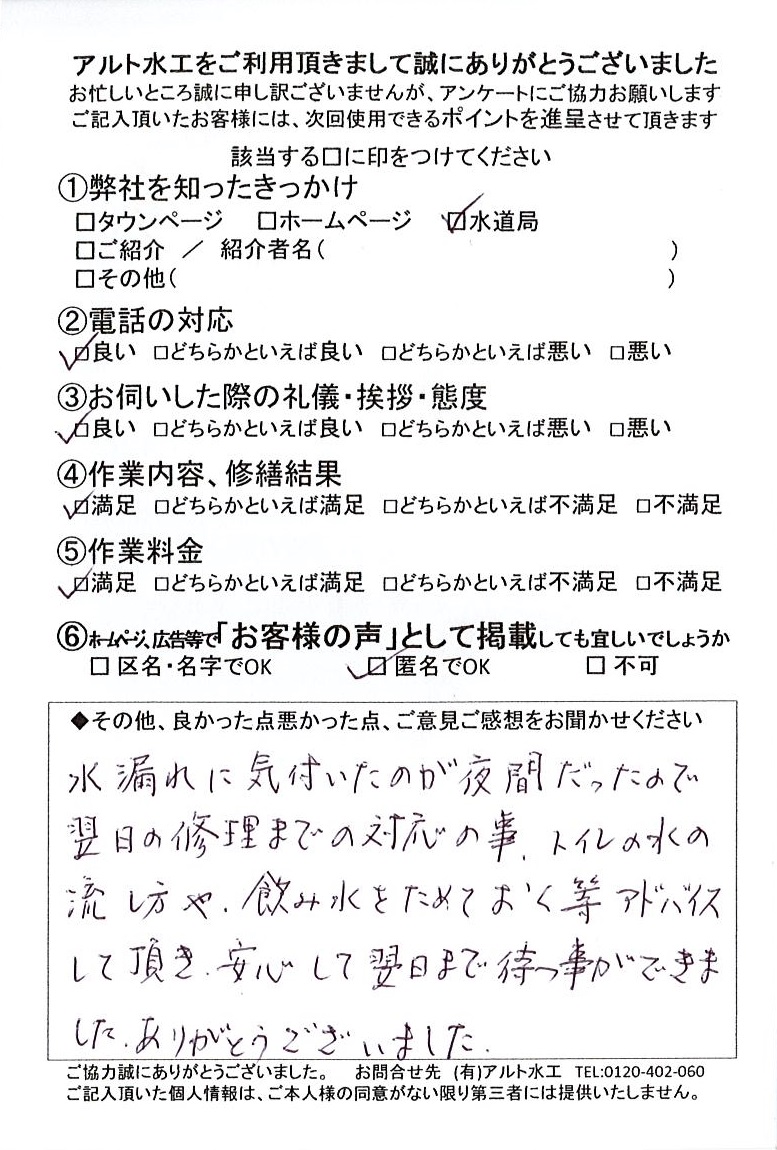 アルト水工をご利用頂きまして誠にありがとうございました
お忙しいところ誠に申し訳ございませんが、アンケートにご協力お願いします
ご記入頂いたお客様には、次回使用できるポイントを進呈させて頂きます
該当する□に印をつけてください
①弊社を知ったきっかけ
□タウンページ □ホームページ ☑水道局
□ご紹介 ／ 紹介者名( )
□その他( )
②電話の対応
☑良い □どちらかといえば良い □どちらかといえば悪い □悪い
③お伺いした際の礼儀・挨拶・態度
☑良い □どちらかといえば良い □どちらかといえば悪い □悪い
④作業内容、修繕結果
☑満足 □どちらかといえば満足 □どちらかといえば不満足 □不満足
⑤作業料金
☑満足 □どちらかといえば満足 □どちらかといえば不満足 □不満足
⑥ホームページ、広告等で「お客様の声」として掲載しても宜しいでしょうか
□ 区名・名字でOK ☑ 匿名でOK □ 不可
◆その他、良かった点悪かった点、ご意見ご感想をお聞かせください
水漏れに気付いたのが夜間だったので
翌日の修理までの対応の事、トイレの水の
流し方や、飲み水をためておく等アドバイス
して頂き、安心して翌日まで待つ事ができま
した。ありがとうございました。
ご協力誠にありがとうございました。 お問合せ先 (有)アルト水工 TEL:0120-402-060
ご記入頂いた個人情報は、ご本人様の同意がない限り第三者には提供いたしません。